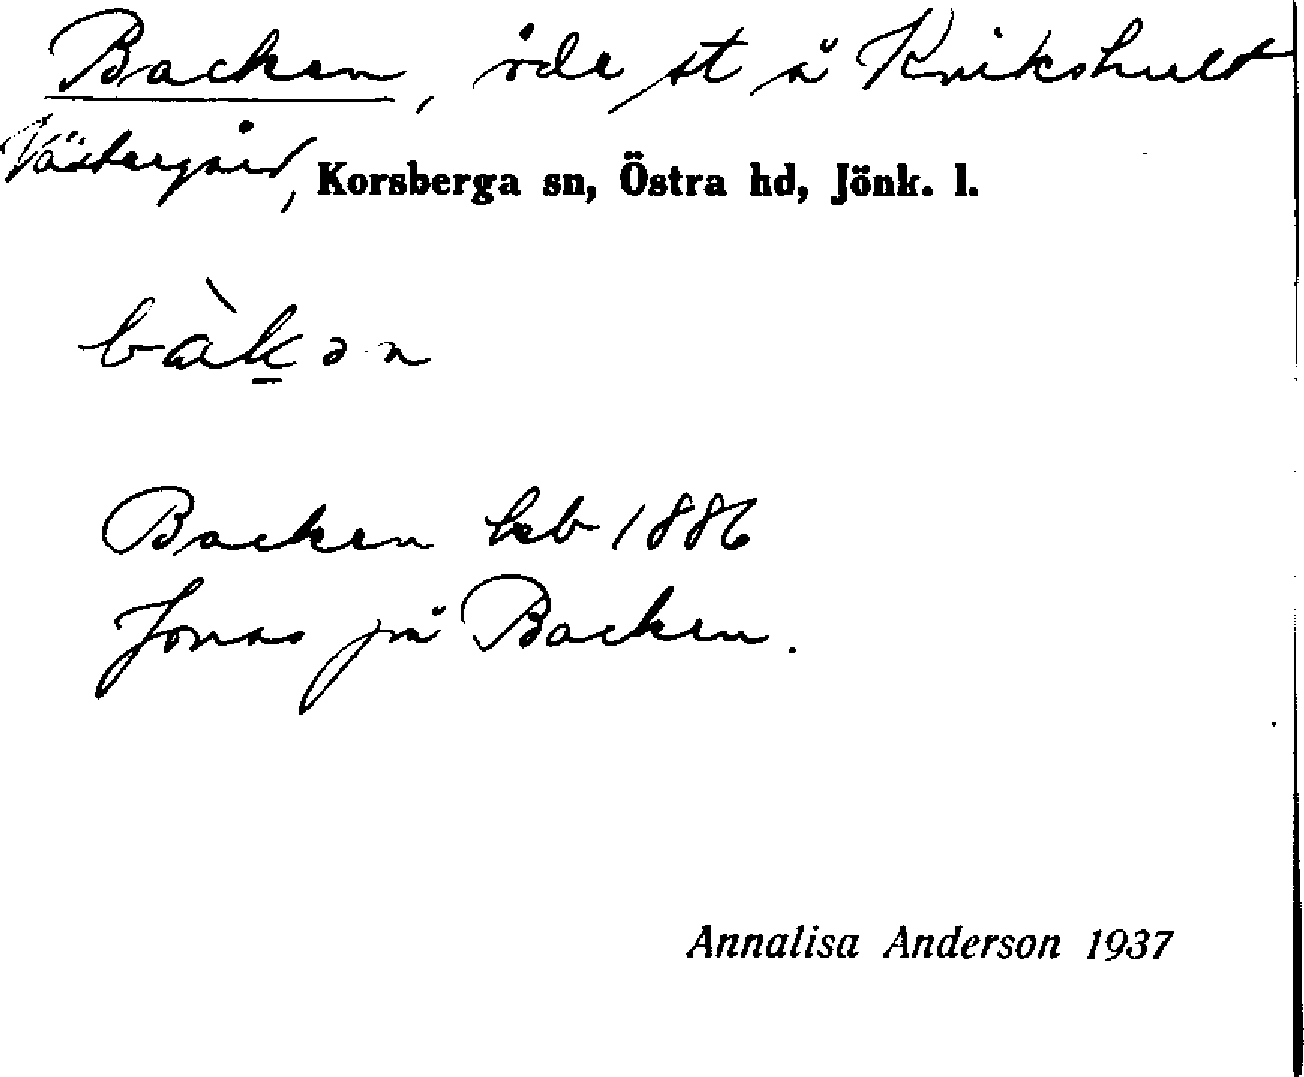 Backen, öde st å Knikshult
Västergård, Korsberga sn, Östra hd, Jönk. l.
bàk̲ən
Backen hsb 1886
Jonas på Backen.
Annalisa Anderson 1937